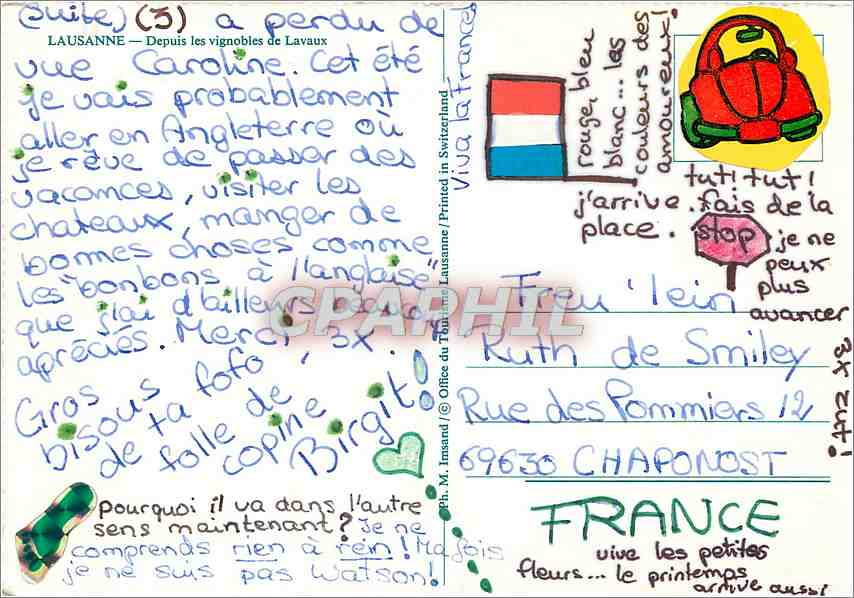 (suite) (3) a perdu de
LAUSANNE — Depuis les vignobles de Lavaux
vue Caroline. Cet été
je vais probablement
aller en Angleterre où
je rêve de passer des
vacances, visiter les
chateaux, manger de
bonnes choses comme
les "bonbons à l'anglaise"
que j'ai d'ailleurs beaucoup
apréciés. Merci, 3x.
Gros
bisous
de ta fofo
de folle de
copine
Birgit!
pourquoi il va dans l'autre
sens maintenant? Je ne
comprends rien à rein! Ma fois
je ne suis pas Watson!
Ph. M. Imsand / © Office du Tourisme Lausanne / Printed in Switzerland
Viva la France
rouge, bleu
blanc... les
couleurs des
amoureux!
tut! tut!
j'arrive. fais de la
place.
stop
je ne
peux
plus
avancer
3x zut!
CPAPHIL
Freu'lein
Ruth de Smiley
Rue des Pommiers 12
69630 CHAPONOST
FRANCE
vive les petites
fleurs... le printemps
arrive aussi